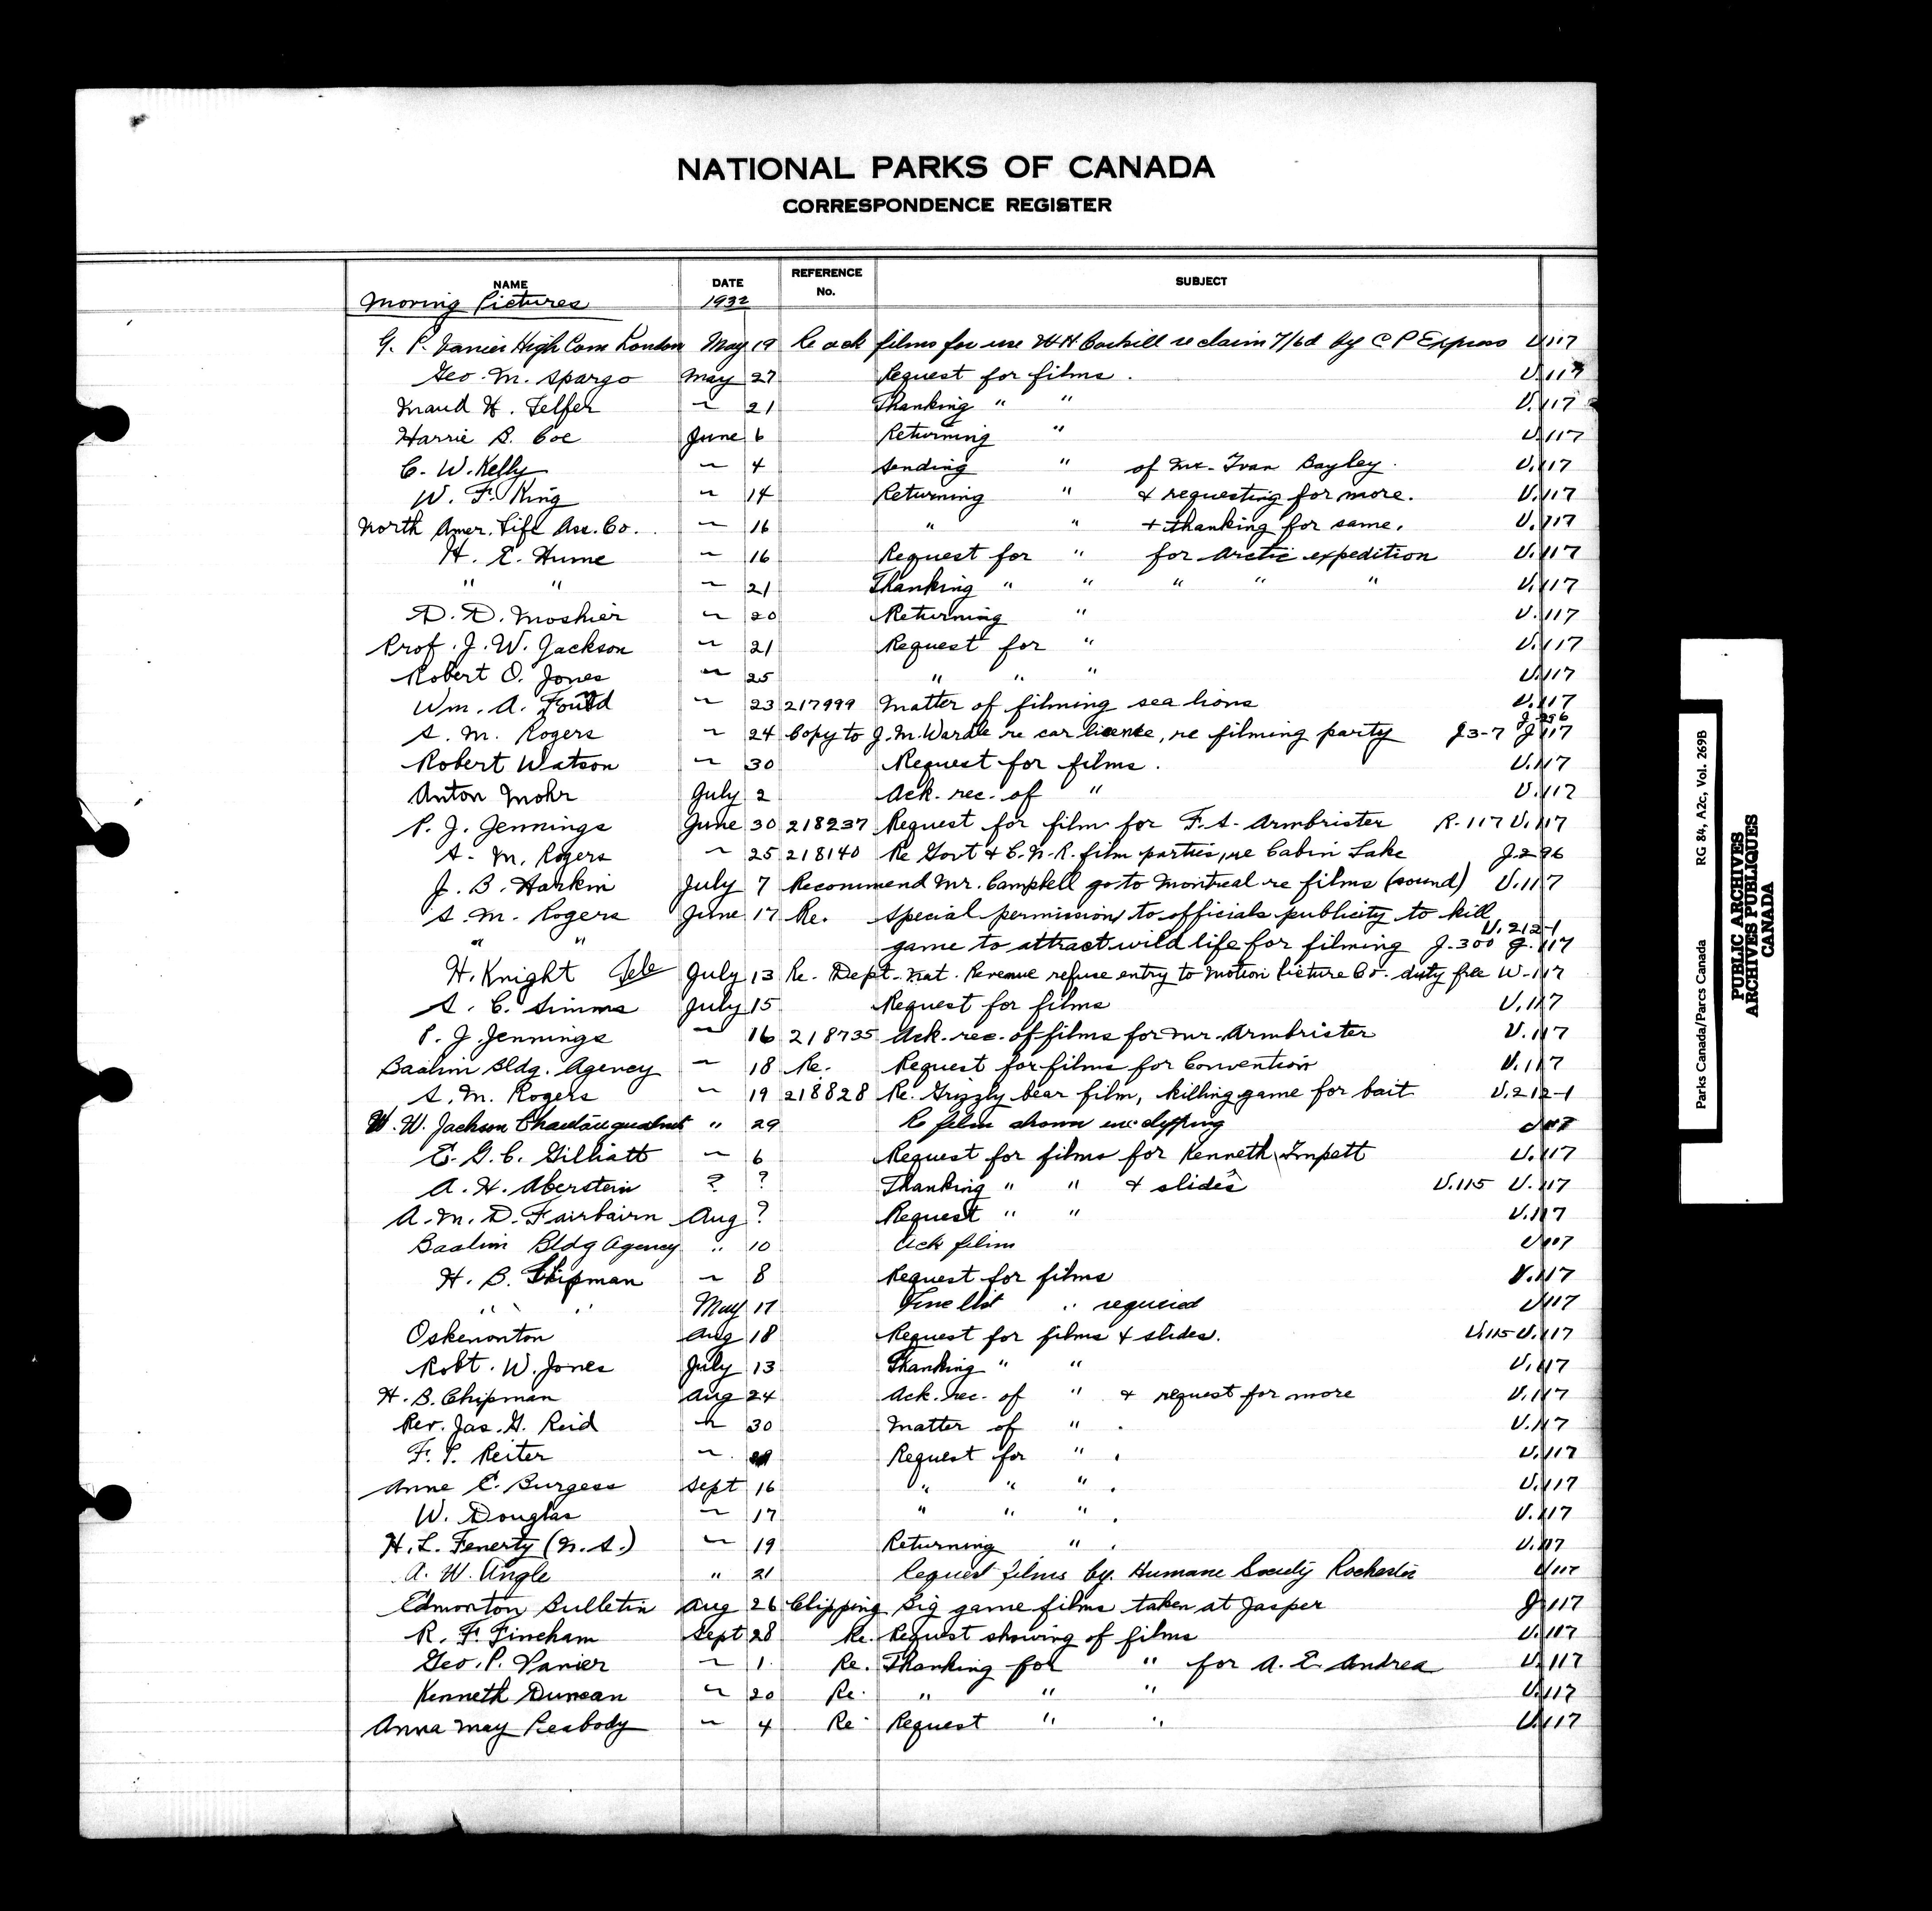 NATIONAL PARKS OF CANADA
CORRESPONDENCE REGISTER
NAME DATE REFERENCE No. SUBJECT
Moving Pictures 1932
G. P. Vanier High Com London May 19 Re ack films for use W H reclaim 7/6d by C P Express U 117
Geo. M. Spargo May 27 Request for films. U.117
Maud H. Telfer " 21 Thanking " " U.117
Harrie B. Coe June 6 Returning " U.117
C. W. Kelly " 4 Sending " of Mr. Ivan Bayley. U.117
W. F. King " 14 Returning " & requesting for more. U.117
North Amer. Life Ass. Co. " 16 " " + thanking for same. U.117
H. E. Hume " 16 Request for " for Arctic expedition U.117
" " " 21 Thanking " " " " " U.117
D. D. Moshier " 20 Returning " U.117
Prof. J. W. Jackson " 21 Request for " U.117
Robert O. Jones " 25 " " " U.117
Wm. A. Found " 23 217999 Matter of filming sea lions U.117
S. M. Rogers " 24 Copy to J. M. Wardle re car license, re filming party J3-7 J.296 J 117
Robert Watson " 30 Request for films. U.117
Anton Mohr July 2 Ack. rec. of " U.117
P. J. Jennings June 30 218237 Request for film for F. S. Armbrister R-117 U.117
S. M. Rogers " 25 218140 Re Govt & C. N. R. film parties, re Cabin Lake J.296
J. B. Harkin July 7 Recommend Mr. Campbell go to Montreal re films (sound) U.117
S. M. Rogers June 17 Re. special permission to officials publicity to kill
" " game to attract wild life for filming J.300 U.212-1 J.117
H. Knight Tele July 13 Re. Dept. Nat. Revenue refuse entry to Motion Picture Co. duty free W-117
S. C. Simms July 15 Request for films U.117
P. J. Jennings " 16 218735 Ack. rec. of films for Mr. Armbrister U.117
Baalim Bldg. Agency " 18 Re. Request for films for Convention U.117
S. M. Rogers " 19 218828 Re. Grizzly bear film, killing game for bait U.212-1
W. W. Jackson " 29 Re film shown U 117
E. G. C. Gilliatt " 6 Request for films for Kenneth Impett U.117
A. H. Aberstein ? ? Thanking " " & slides U.115 U.117
A. M. D. Fairbairn Aug ? Request " " U.117
Baalim Bldg Agency " 10 Ack films U 117
H. B. Chipman " 8 Request for films U.117
" " May 17 " required U 117
Oskenonton Aug 18 Request for films & slides. U.115 U.117
Robt. W. Jones July 13 Thanking " " U.117
H. B. Chipman Aug 24 Ack. rec. of " & request for more U.117
Rev. Jas. G. Reid " 30 Matter of " . U.117
F. P. Reiter " Request for " . U.117
Anne E. Burgess Sept 16 " " " . U.117
W. Douglas " 17 " " " . U.117
H. L. Fenerty (N.S.) " 19 Returning " . U.117
A. W. Angle " 21 Request films by Humane Society Rochester U 117
Edmonton Bulletin Aug 26 Clipping Big game films taken at Jasper J 117
R. F. Fincham Sept 28 Re. Request showing of films U.117
Geo. P. Vanier " 1 Re. Thanking for " for A. E. Andrea U.117
Kenneth Duncan " 20 Re. " " " U.117
Anna May Peabody " 4 Re Request " " U.117
Parks Canada/Parcs Canada RG 84, A2c, Vol. 269B
PUBLIC ARCHIVES
ARCHIVES PUBLIQUES
CANADA